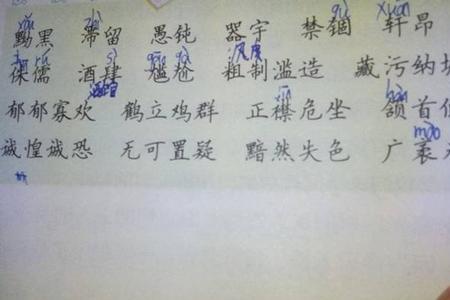 yǒu zhì gù xuān
黝黑 滞留 愚钝 器宇 禁锢 轩昂
rú sì gān gà 风度
侏儒 酒肆 尴尬 粗制滥造 藏污纳
jīn hàn
郁郁寡欢 鹤立鸡群 正襟危坐 颔首
mào
诚惶诚恐 无可置疑 黯然失色 广袤